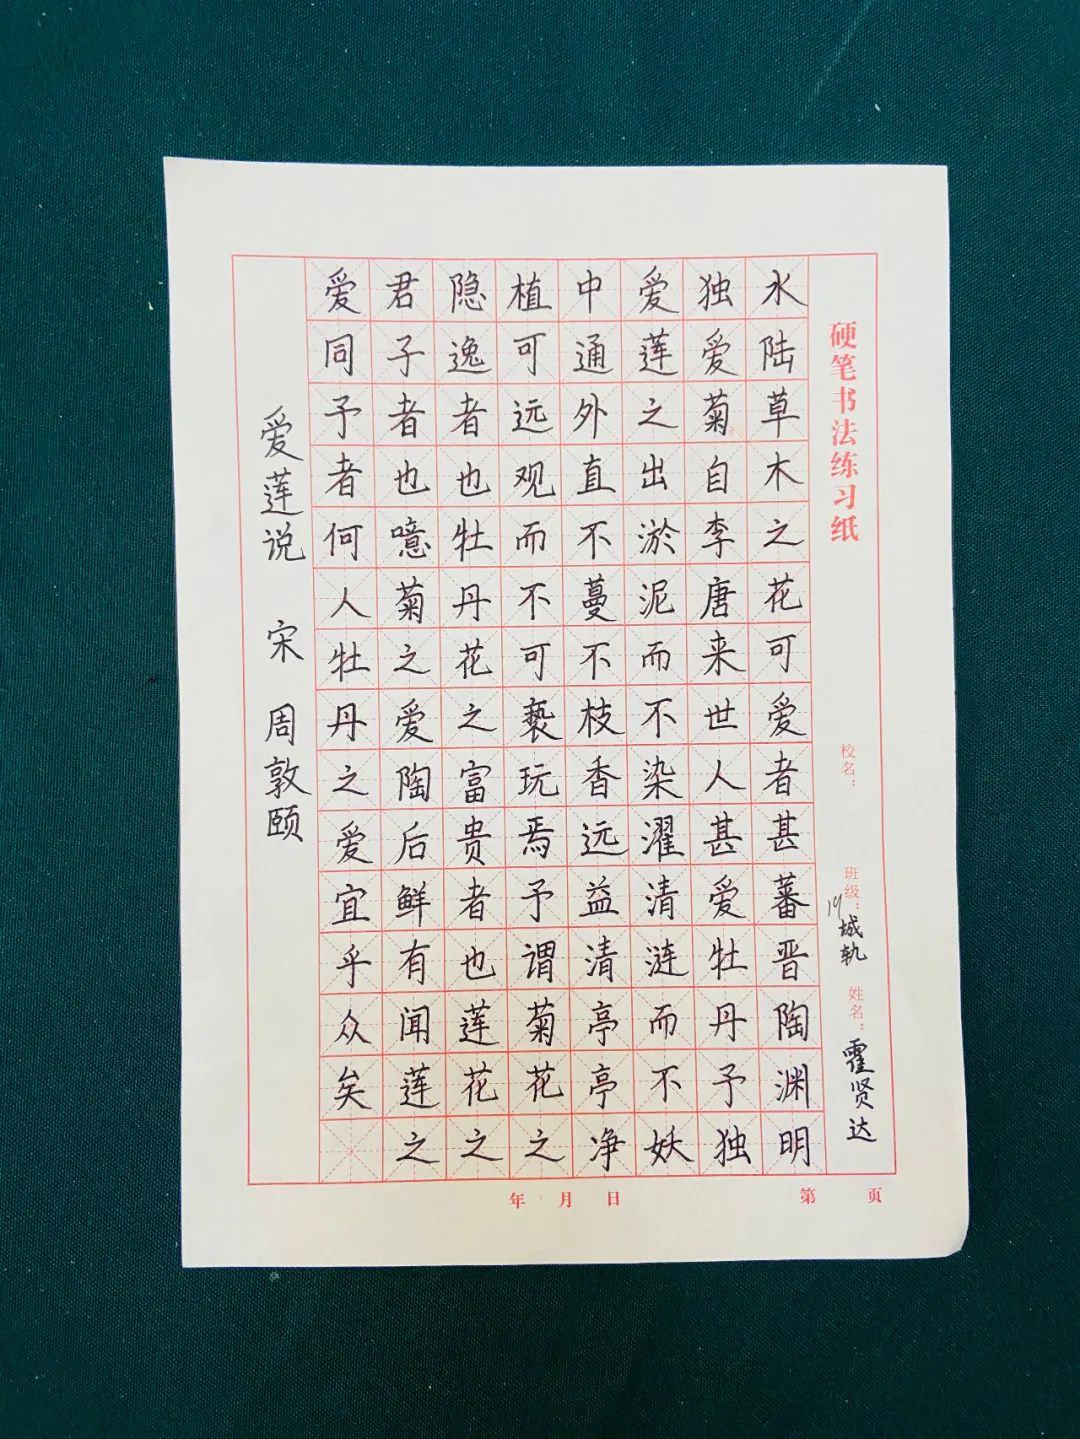 硬笔书法练习纸
校名：
班级：19城轨
姓名：霍贤达
水陆草木之花可爱者甚蕃晋陶渊明
独爱菊自李唐来世人甚爱牡丹予独
爱莲之出淤泥而不染濯清涟而不妖
中通外直不蔓不枝香远益清亭亭净
植可远观而不可亵玩焉予谓菊花之
隐逸者也牡丹花之富贵者也莲花之
君子者也噫菊之爱陶后鲜有闻莲之
爱同予者何人牡丹之爱宜乎众矣
爱莲说 宋 周敦颐
年 月 日
第 页